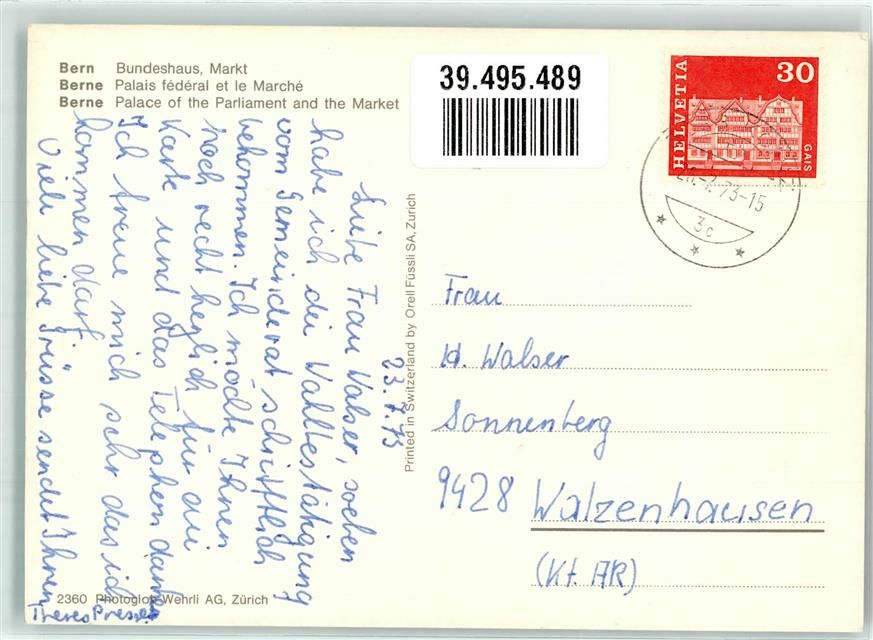 Bern Bundeshaus, Markt
Berne Palais fédéral et le Marché
Berne Palace of the Parliament and the Market
39.495.489
HELVETIA
30
GAIS
73-15
3c
23.7.73
Liebe Frau Walser, soeben
habe ich die Wahlbestätigung
vom Gemeinderat schriftlich
bekommen. Ich möchte Ihnen
noch recht herzlich für die
Karte und das Telephon danken
Ich freue mich sehr das ich
kommen darf.
Viele liebe Grüsse sendet Ihnen
Theres
Printed in Switzerland by Orell Füssli SA, Zurich
Frau
H. Walser
Sonnenberg
9428 Walzenhausen
(Kt. AR)
2360 Photoglob-Wehrli AG, Zürich